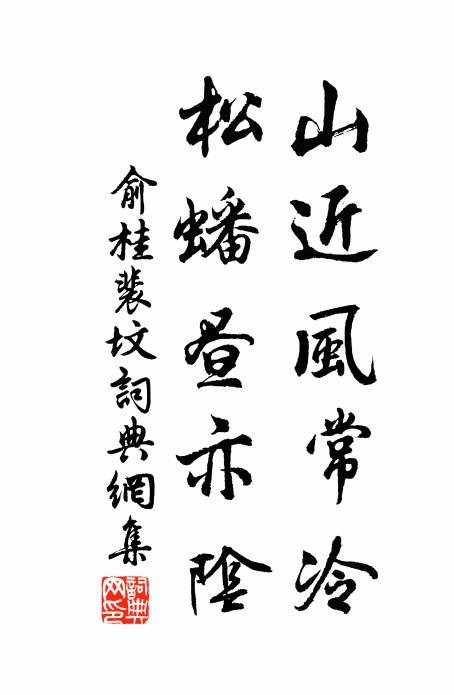 山近風常冷
松蟠昼亦陰
俞桂裴坟詞典網集
詞典
网印